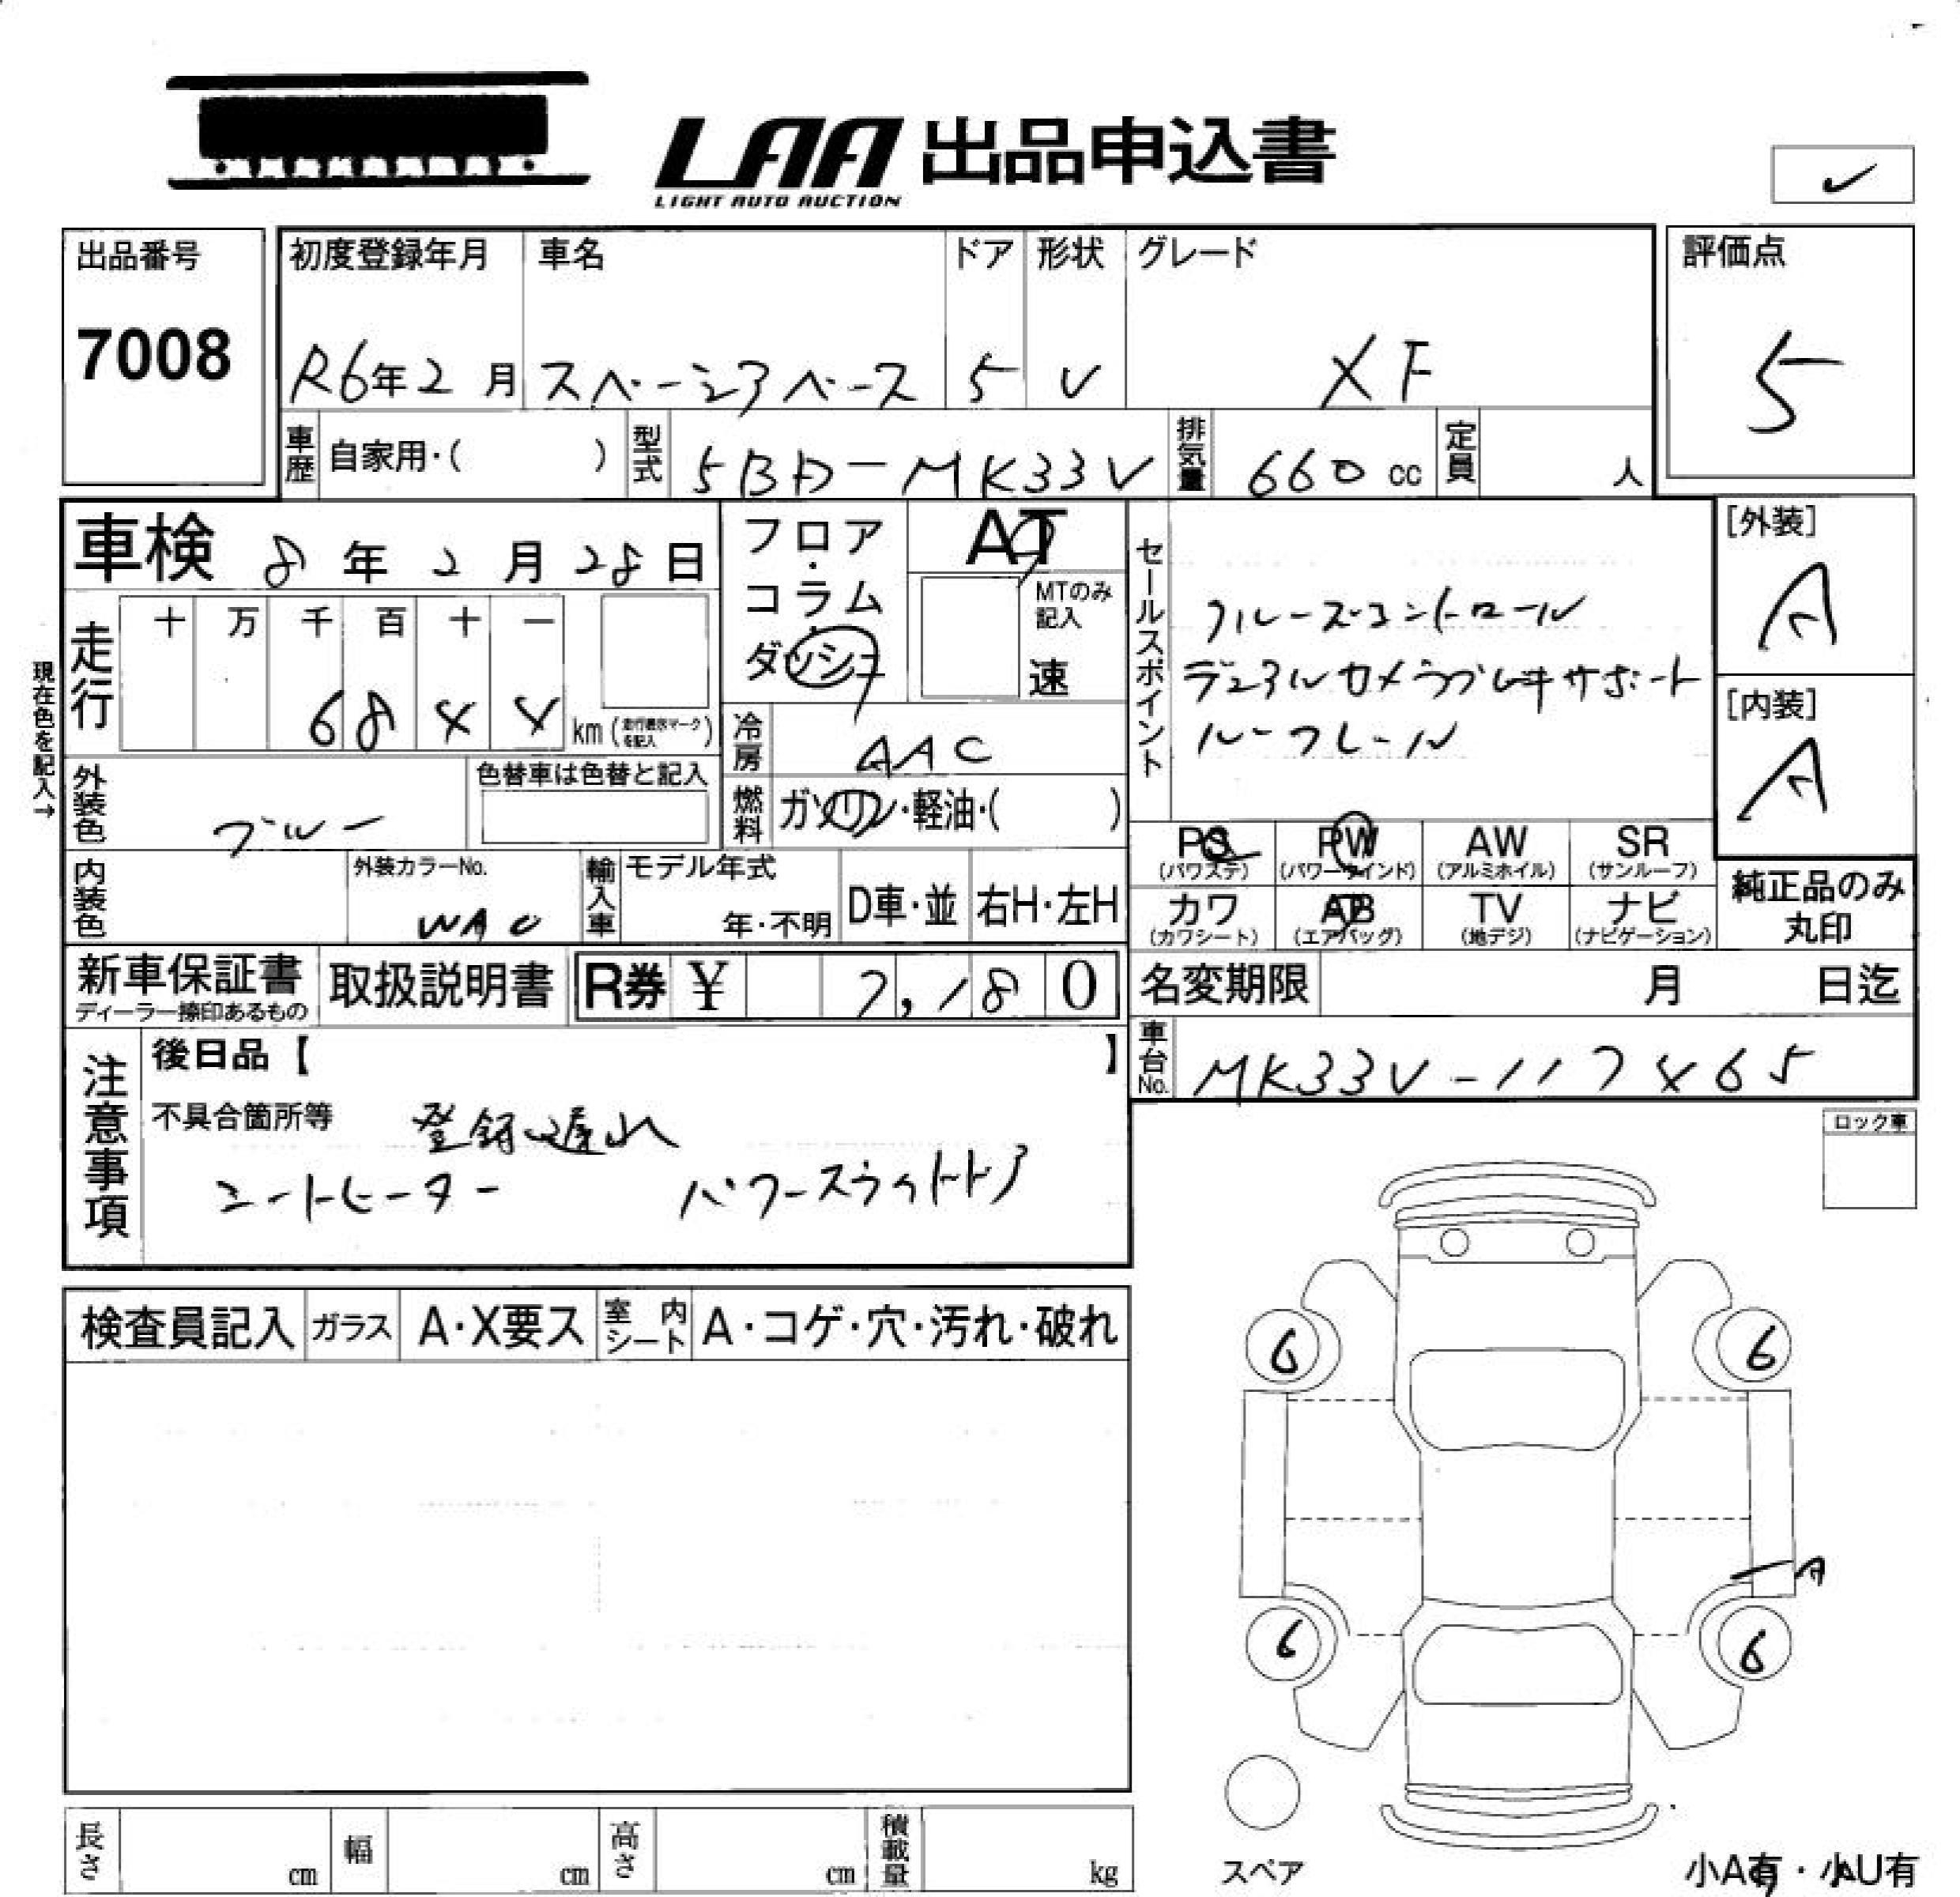 LAA 出品申込書
LIGHT AUTO AUCTION
出品番号
7008
初度登録年月
R6年2月
車名
スペーシアベース
ドア
5
形状
V
グレード
XF
評価点
5
車歴 自家用・( )
型式 5BD-MK33V
排気量 660 cc
定員 人
車検 8年2月28日
フロア・コラム・ダッシュ
AT
MTのみ記入
速
セールスポイント
クルーズコントロール
デュアルカメラブレーキサポート
ルーフレール
[外装]
A
[内装]
A
現在色を記入→
走行
十 万 千 百 十 一
68XX km (走行表示マークを記入)
冷房 AAC
燃料 ガソリン・軽油・( )
外装色 ブルー
色替車は色替と記入
内装色
外装カラーNo.
輸入車
モデル年式
年・不明
D車・並
右H・左H
PS (パワステ)
PW (パワーウインド)
AW (アルミホイル)
SR (サンルーフ)
カワ (カワシート)
AB (エアバッグ)
TV (地デジ)
ナビ (ナビゲーション)
純正品のみ丸印
新車保証書
ディーラー捺印あるもの
取扱説明書
R券 ¥ 7,180
名変期限 月 日迄
車台No. MK33V-117X65
注意事項
後日品【 】
不具合箇所等 登録遅れ
シートヒーター パワースライドドア
ロック車
検査員記入
ガラス A・X要ス
室内シート A・コゲ・穴・汚れ・破れ
6 6
A
6 6
スペア
小A有・小U有
長さ cm
幅 cm
高さ cm
積載量 kg